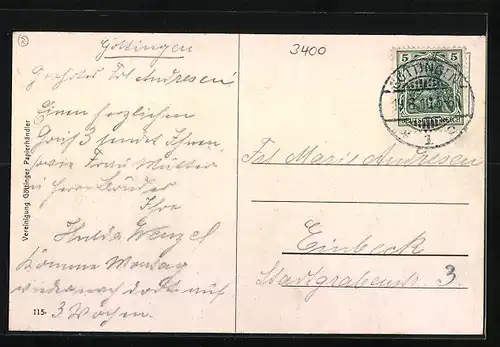 2
Göttingen
3400
Geehrtes Frl. Andresen!
Einen herzlichen
Gruß sendet Ihnen,
sowie Frau Mutter
u. Herrn Bruder
Ihre
Hulda Wenzel
Komme Montag
wieder nach dort auf
3 Wochen.
Vereinigung Göttinger Papierhändler
115-
5 5
GÖTTINGEN
Frl. Marie Andresen
Einbeck
Stadtgrabenstr. 3.